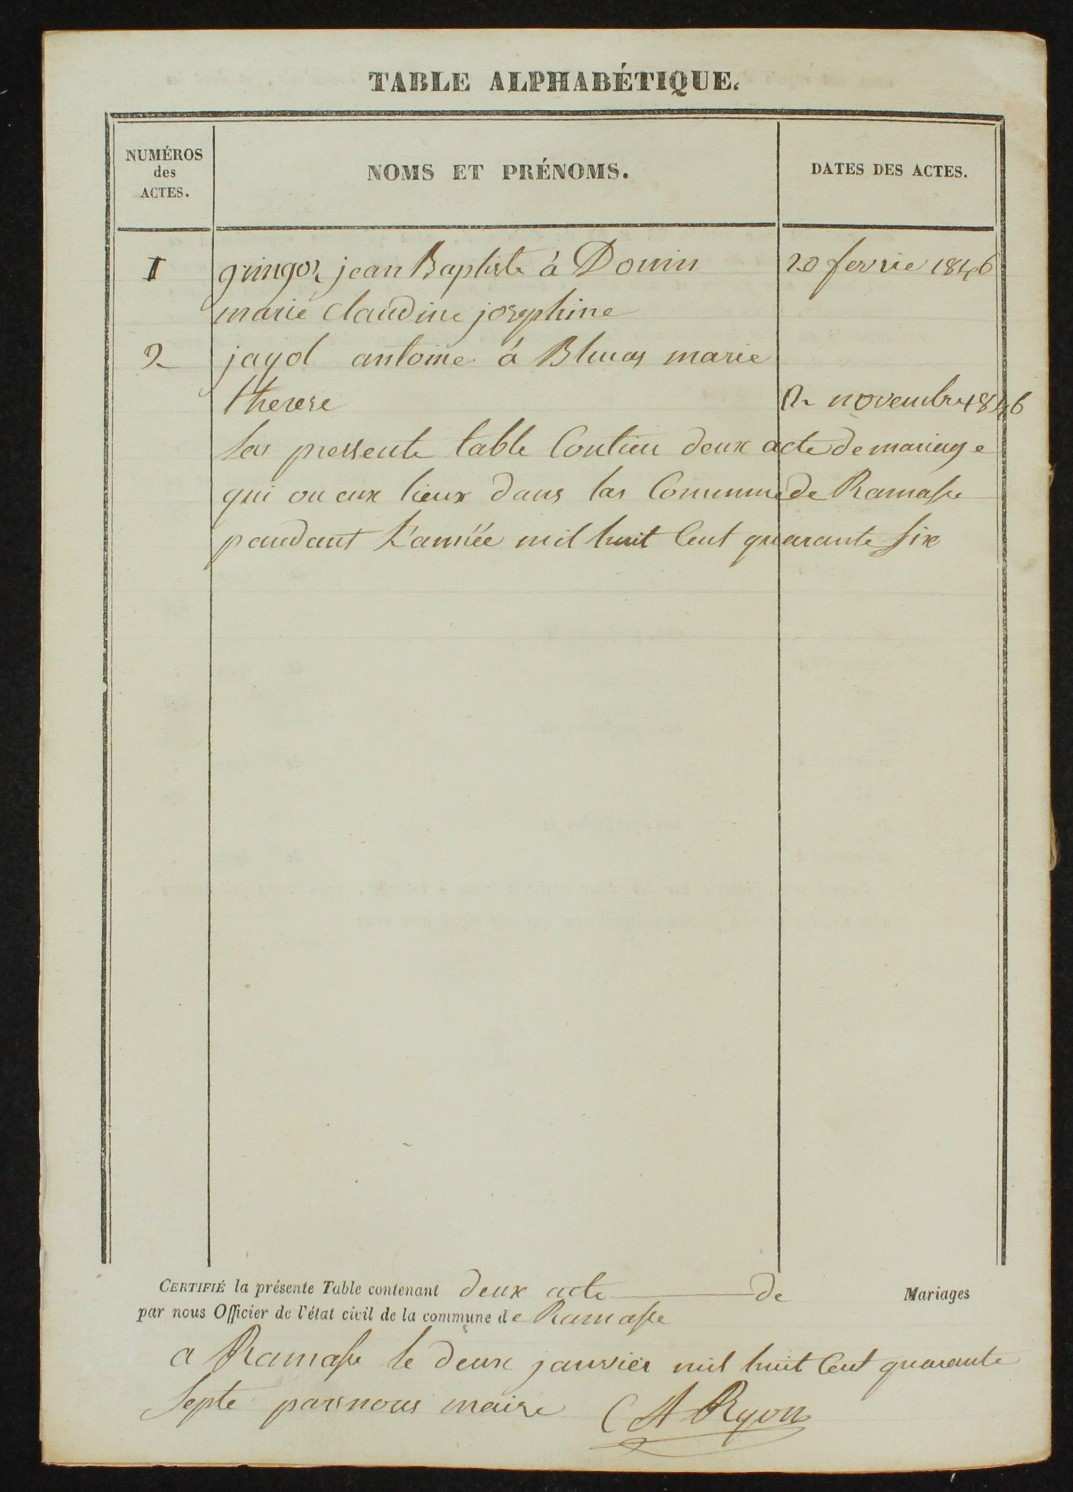 TABLE ALPHABÉTIQUE.
NUMÉROS
des
ACTES.
NOMS ET PRÉNOMS.
DATES DES ACTES.
1 gringoz jean Baptiste à Donin 20 fevrie 1846
marie claudine josephine
2 jayol antoine à Bluas marie
therese 2 novembre 1846
las pressente table Contien deux acte de mariage
qui on eux lieux dans las Commune de Ramasse
pandant L'année mil huit Cent quarante six
CERTIFIÉ la présente Table contenant deux acte de Mariages
par nous Officier de l'état civil de la commune de Ramasse
a Ramasse le deux janvier mil huit Cent quarante
septe par nous maire C A Ryon